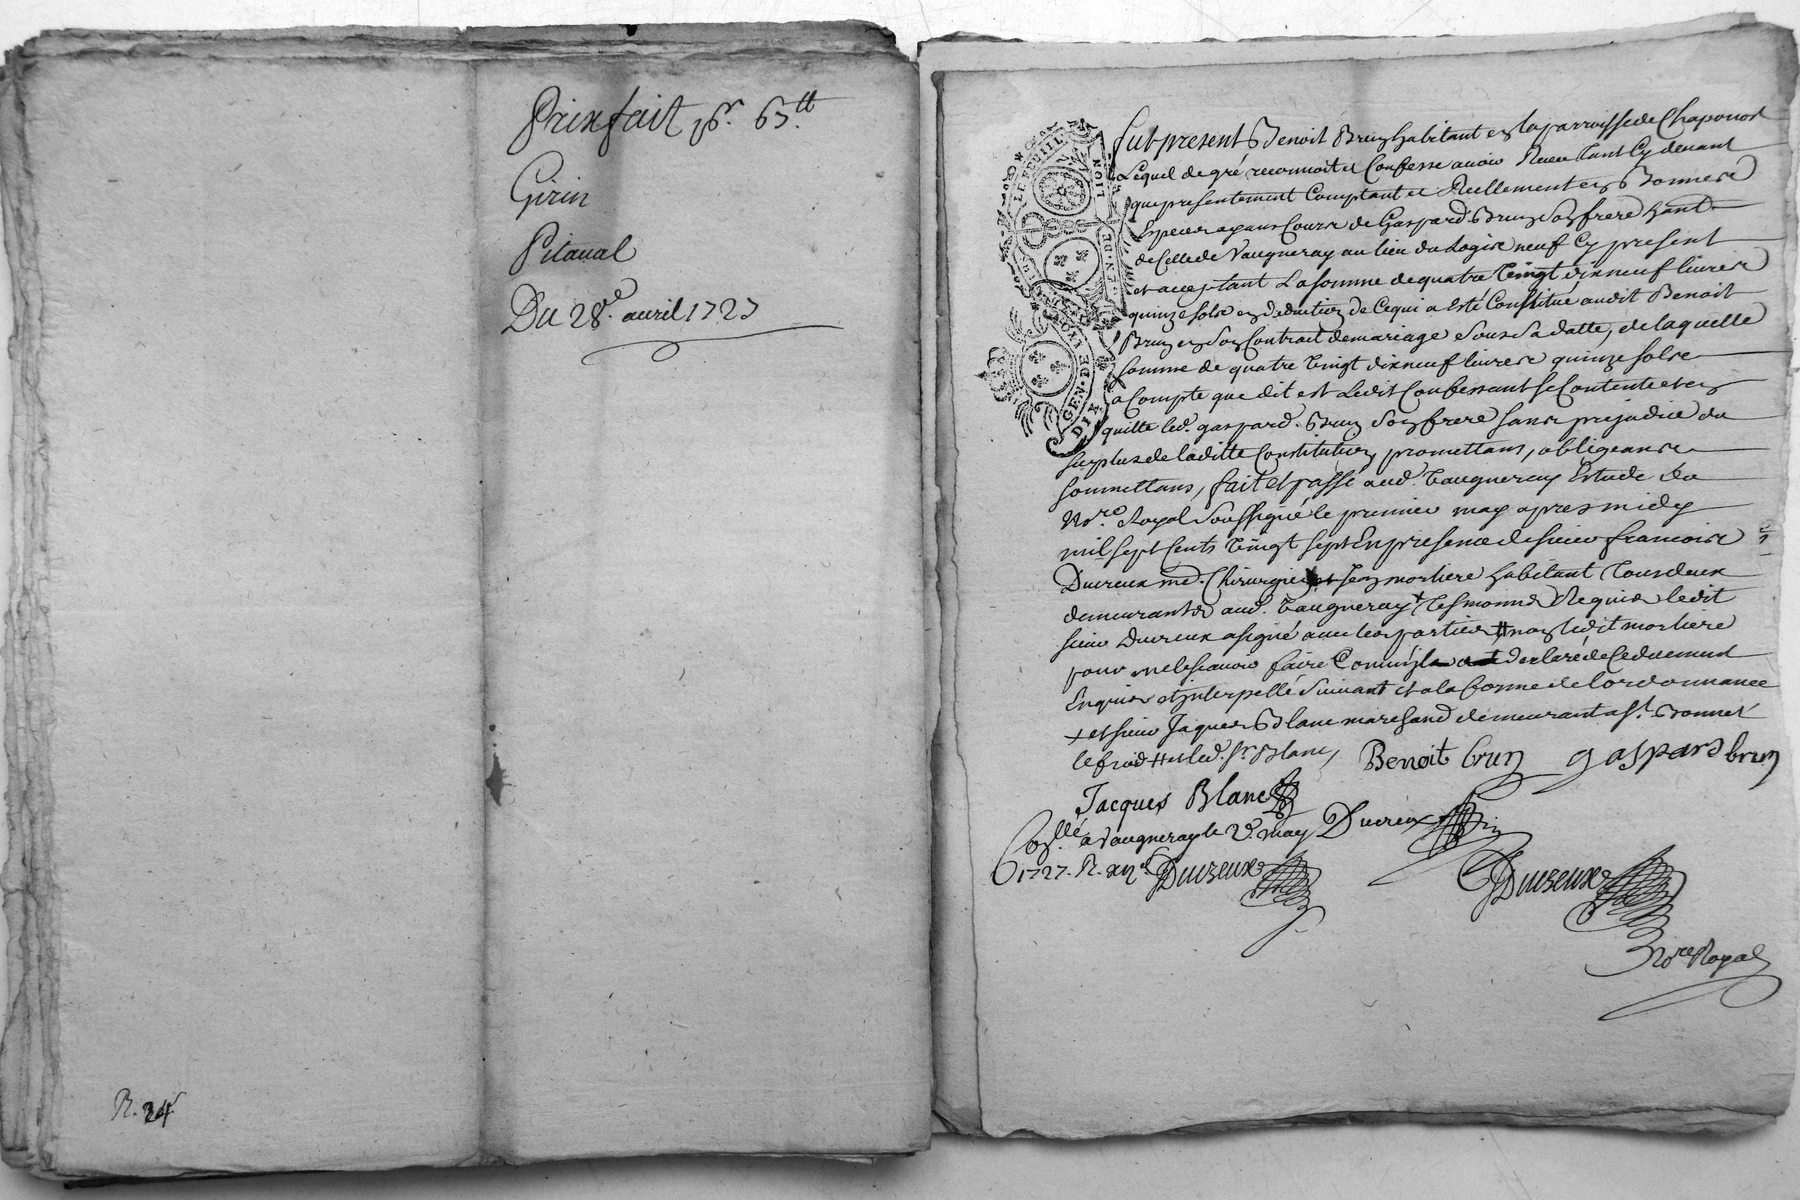 Prixfait pr. 65tt
Girin
Pitaval
Du 28e. avril 1727
R. 24s
LE FEUIL
LION
GEN. DE
DIX
fut present Benoit Brun habitant en la parroisse de Chaponost
Lequel de gré reconnoit et Confesse avoir Receu tant Cy devant
que presentement Comptant et Reellement en Bonnes
Especes ayans Cours de Gaspard Brun Son frere hant
de Celle de Vaugneray au lieu du Logis neuf Cy present
et acceptant La somme de quatre Vingt dix neuf livres
quinze sols en deduction de Ce qui a Esté Constitué audit Benoit
Brun en Son Contrait de mariage Sous Sa datte, de laquelle
somme de quatre Vingt dix neuf livres quinze sols
a Compte que dit est Ledit Confessant se Contente et en
quitte led. gaspard Brun Son frere sans prejudice du
surplus de laditte Constitution, promettans, obligeans
sommettans, fait et passé aud. Vaugneray Estude du
Nore. Royal Soussigné le premier may apres midy
mil sept Cents Vingt sept En presence de sieur francois
Ducreux me. Chirurgien et Jean mortiere habitant Tous deux
demeurants aud. Vaugneray + Tesmoins Requis ledit
sieur Ducreux a signé avec les parties # non ledit mortiere
pour ne le scavoir faire Comm'il a declaré de Ce duement
Enquis et interpellé Suivant et a la forme de lordonnance
+ et sieur Jaques Blanc marchand demeurant a st. Bonnet
le froid # et led. sr. Blanc,
Benoit brun gaspard brun
Jacques Blanc
Conllé a Vaugneray le 2e. may Ducreux
1727. R. Ducreux
Ducreux
Nore Royal